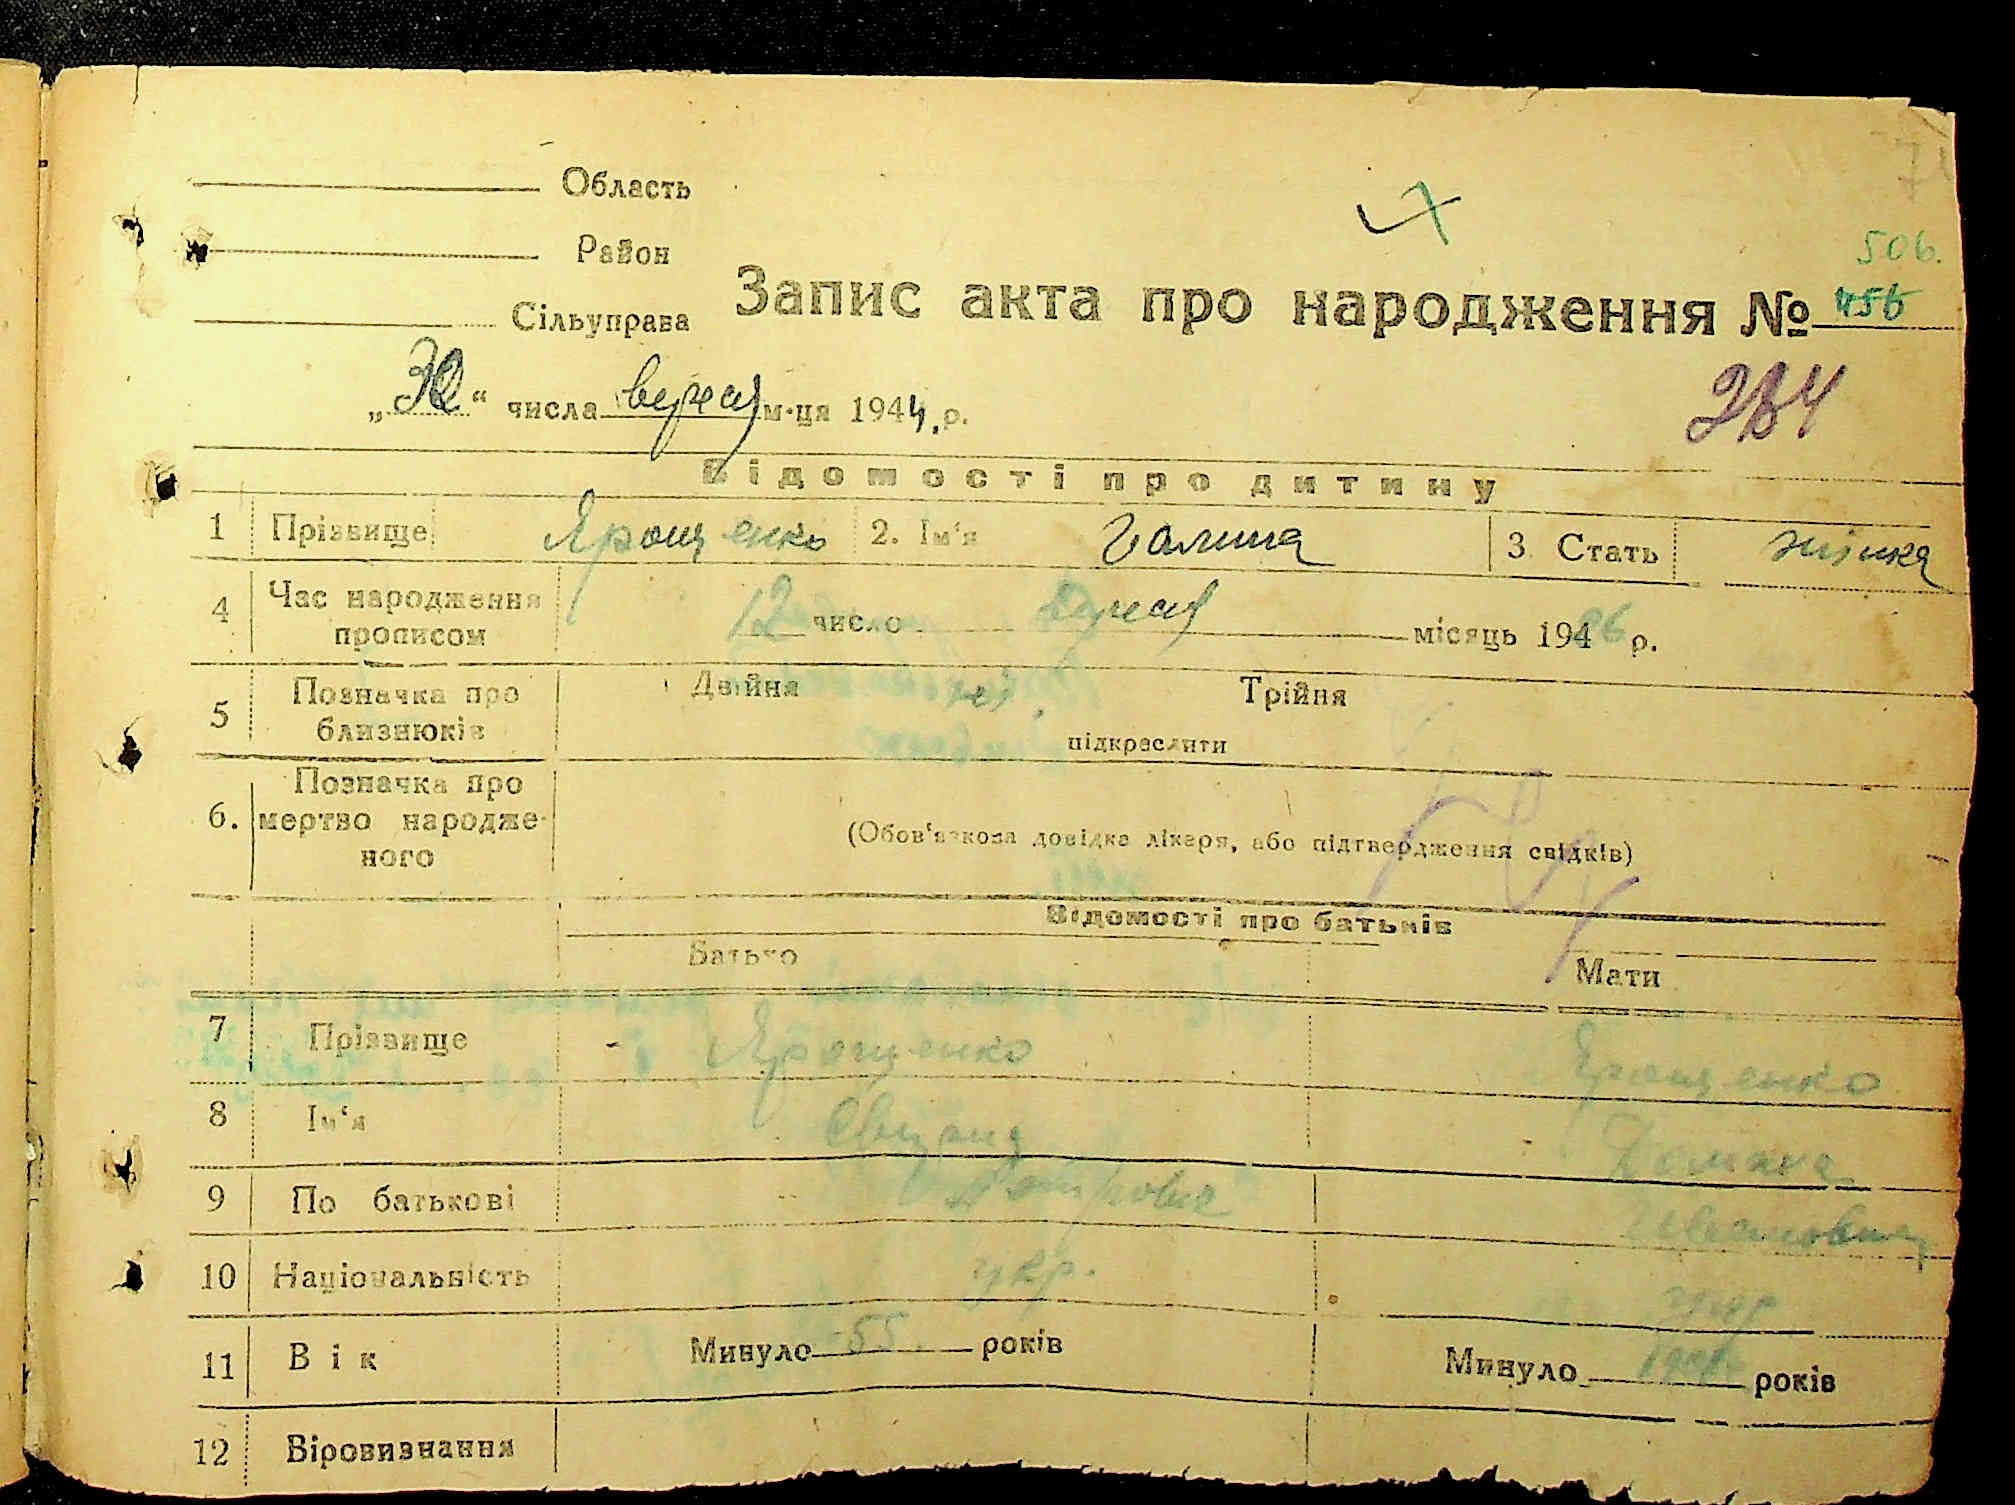 Область
Район
506.
Сільуправа
Запис акта про народження № 456
284
„30“ числа верес м-ця 1944 р.
Відомості про дитину
1 Прізвище Ярощенко 2. Ім‘я Галина 3 Стать жінка
4 Час народження прописом 12 число верес місяць 194 р.
5 Позначка про близнюків Двійня ні Трійня
підкреслити
6. Позначка про мертво народженого
(Обов‘язкова довідка лікаря, або підтвердження свідків)
Відомості про батьків
Батько Мати
7 Прізвище Ярощенко Ярощенко
8 Ім‘я
9 По батькові Петрович Івановна
10 Національність укр. укр
11 Вік Минуло 55 років Минуло років
12 Віровизнання